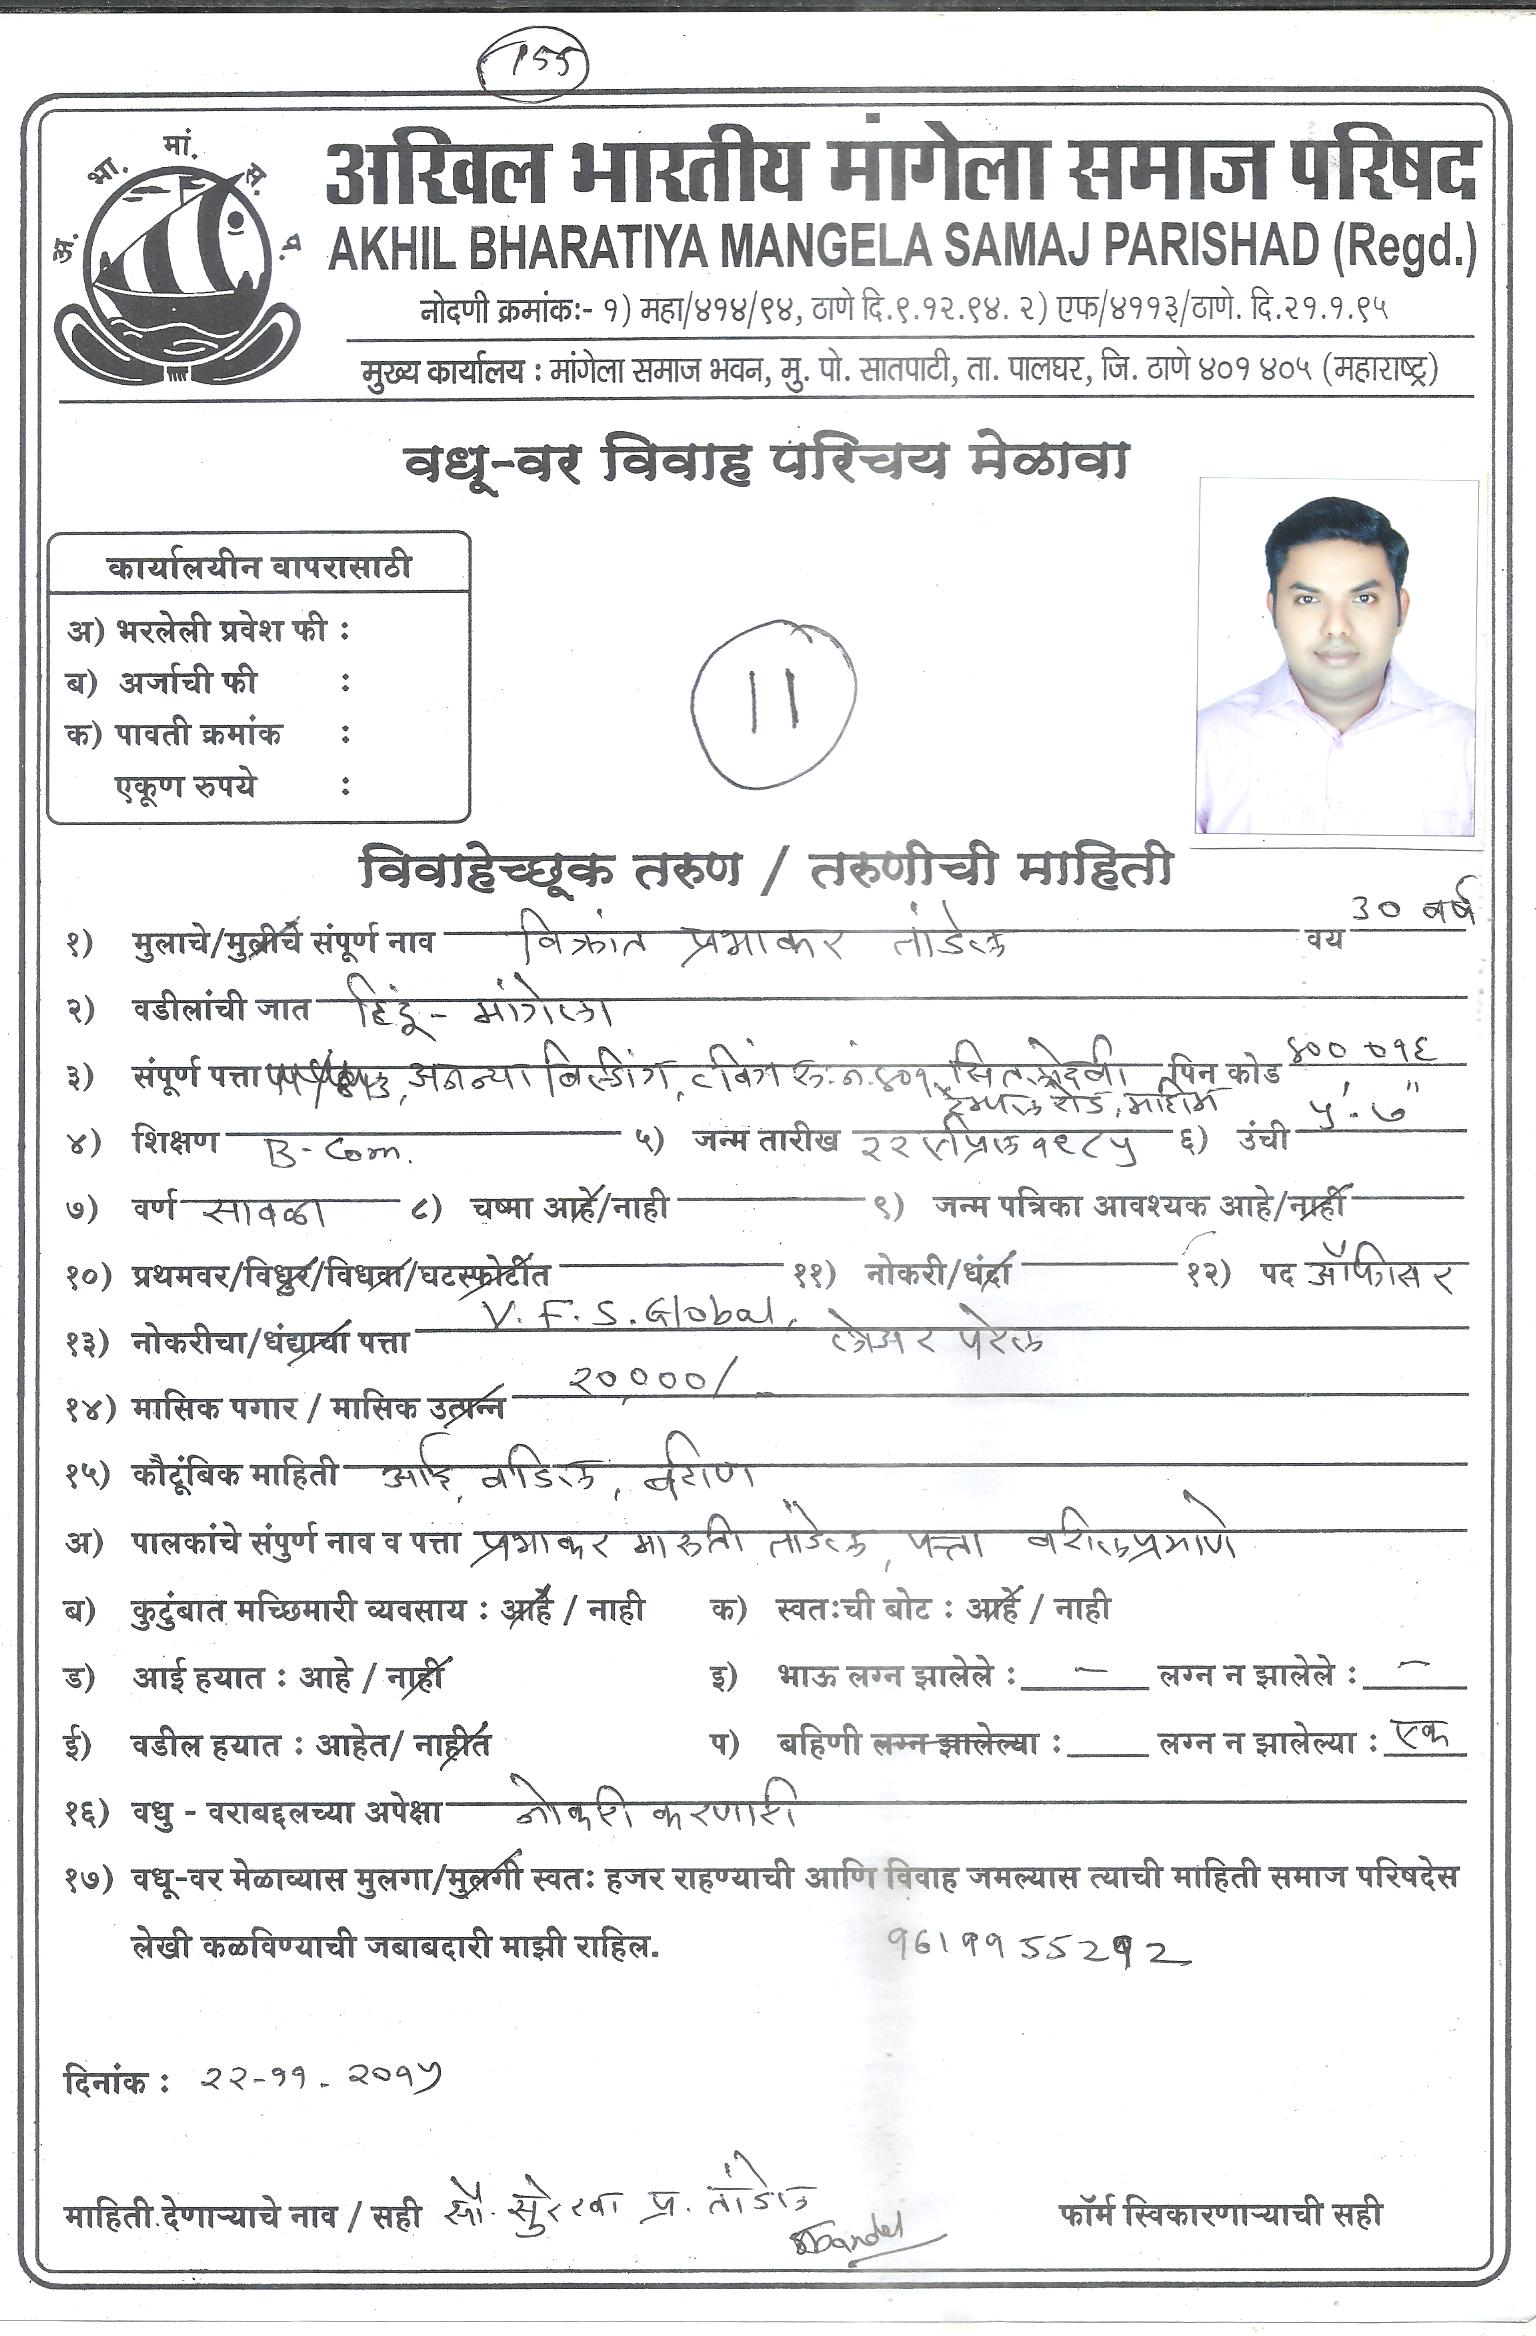 155
अ. भा. मां. स. प.
अखिल भारतीय मांगेला समाज परिषद
AKHIL BHARATIYA MANGELA SAMAJ PARISHAD (Regd.)
नोदणी क्रमांकः- १) महा/४१४/९४, ठाणे दि.९.१२.९४. २) एफ/४११३/ठाणे. दि.२१.१.९५
मुख्य कार्यालय : मांगेला समाज भवन, मु. पो. सातपाटी, ता. पालघर, जि. ठाणे ४०१ ४०५ (महाराष्ट्र)
वधू-वर विवाह परिचय मेळावा
कार्यालयीन वापरासाठी
अ) भरलेली प्रवेश फी :
ब) अर्जाची फी :
क) पावती क्रमांक :
एकूण रुपये :
11
विवाहेच्छूक तरुण / तरुणीची माहिती
१) मुलाचे/मुलीचे संपूर्ण नाव विक्रांत प्रभाकर तांडेल वय ३० वर्ष
२) वडीलांची जात हिंदू - मांगेला
३) संपूर्ण पत्ता अनन्या बिल्डींग, रु.नं.४०१, सितलादेवी पिन कोड ४०० ०१६
टेम्पल रोड, माहिम
४) शिक्षण B-Com. ५) जन्म तारीख २२ एप्रिल १९८५ ६) उंची ५'.७"
७) वर्ण सावळा ८) चष्मा आहे/नाही ९) जन्म पत्रिका आवश्यक आहे/नाही
१०) प्रथमवर/विधुर/विधवा/घटस्फोटीत ११) नोकरी/धंदा १२) पद ऑफीसर
१३) नोकरीचा/धंद्याचा पत्ता V.F.S.Global, लोअर परेल
१४) मासिक पगार / मासिक उत्पन्न २०,०००/-
१५) कौटूंबिक माहिती आई, वडिल, बहीण
अ) पालकांचे संपुर्ण नाव व पत्ता प्रभाकर मारुती तांडेल, पत्ता वरीलप्रमाणे
ब) कुटुंबात मच्छिमारी व्यवसाय : आहे / नाही क) स्वतःची बोट : आहे / नाही
ड) आई हयात : आहे / नाही इ) भाऊ लग्न झालेले : - लग्न न झालेले : -
ई) वडील हयात : आहेत/ नाहीत प) बहिणी लग्न झालेल्या : लग्न न झालेल्या : एक
१६) वधु - वराबद्दलच्या अपेक्षा नोकरी करणारी
१७) वधू-वर मेळाव्यास मुलगा/मुलगी स्वतः हजर राहण्याची आणि विवाह जमल्यास त्याची माहिती समाज परिषदेस
लेखी कळविण्याची जबाबदारी माझी राहिल. 9619955292
दिनांक : २२-११-२०१५
माहिती देणाऱ्याचे नाव / सही सौ. सुरेखा प्र. तांडेल फॉर्म स्विकारणाऱ्याची सही